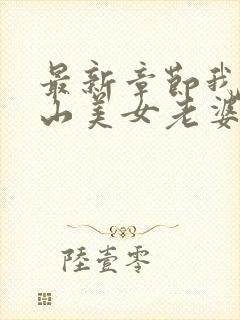 最新章節我
山美女老婆
陸壹零